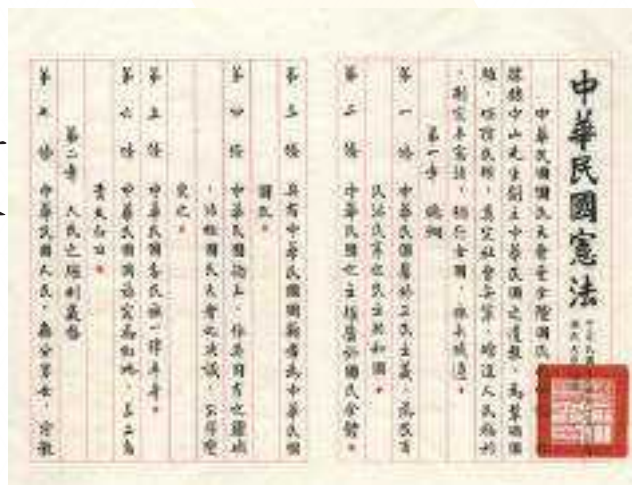 中華民國憲法
中華民國國民大會受全體國民
據孫中山先生創立中華民國之遺教，為鞏固國
權，保障民權，奠定社會安寧，增進人民福利
，制定本憲法，頒行全國，永矢咸遵。
第一章 總綱
第一條 中華民國基於三民主義，為民有
民治民享之民主共和國。
第二條 中華民國之主權屬於國民全體。
第三條 具有中華民國國籍者為中華民國
國民。
第四條 中華民國領土，依其固有之疆域
，非經國民大會之決議，不得變
更之。
第五條 中華民國各民族一律平等。
第六條 中華民國國旗定為紅地，左上角
青天白日。
第二章 人民之權利義務
第七條 中華民國人民，無分男女，宗教